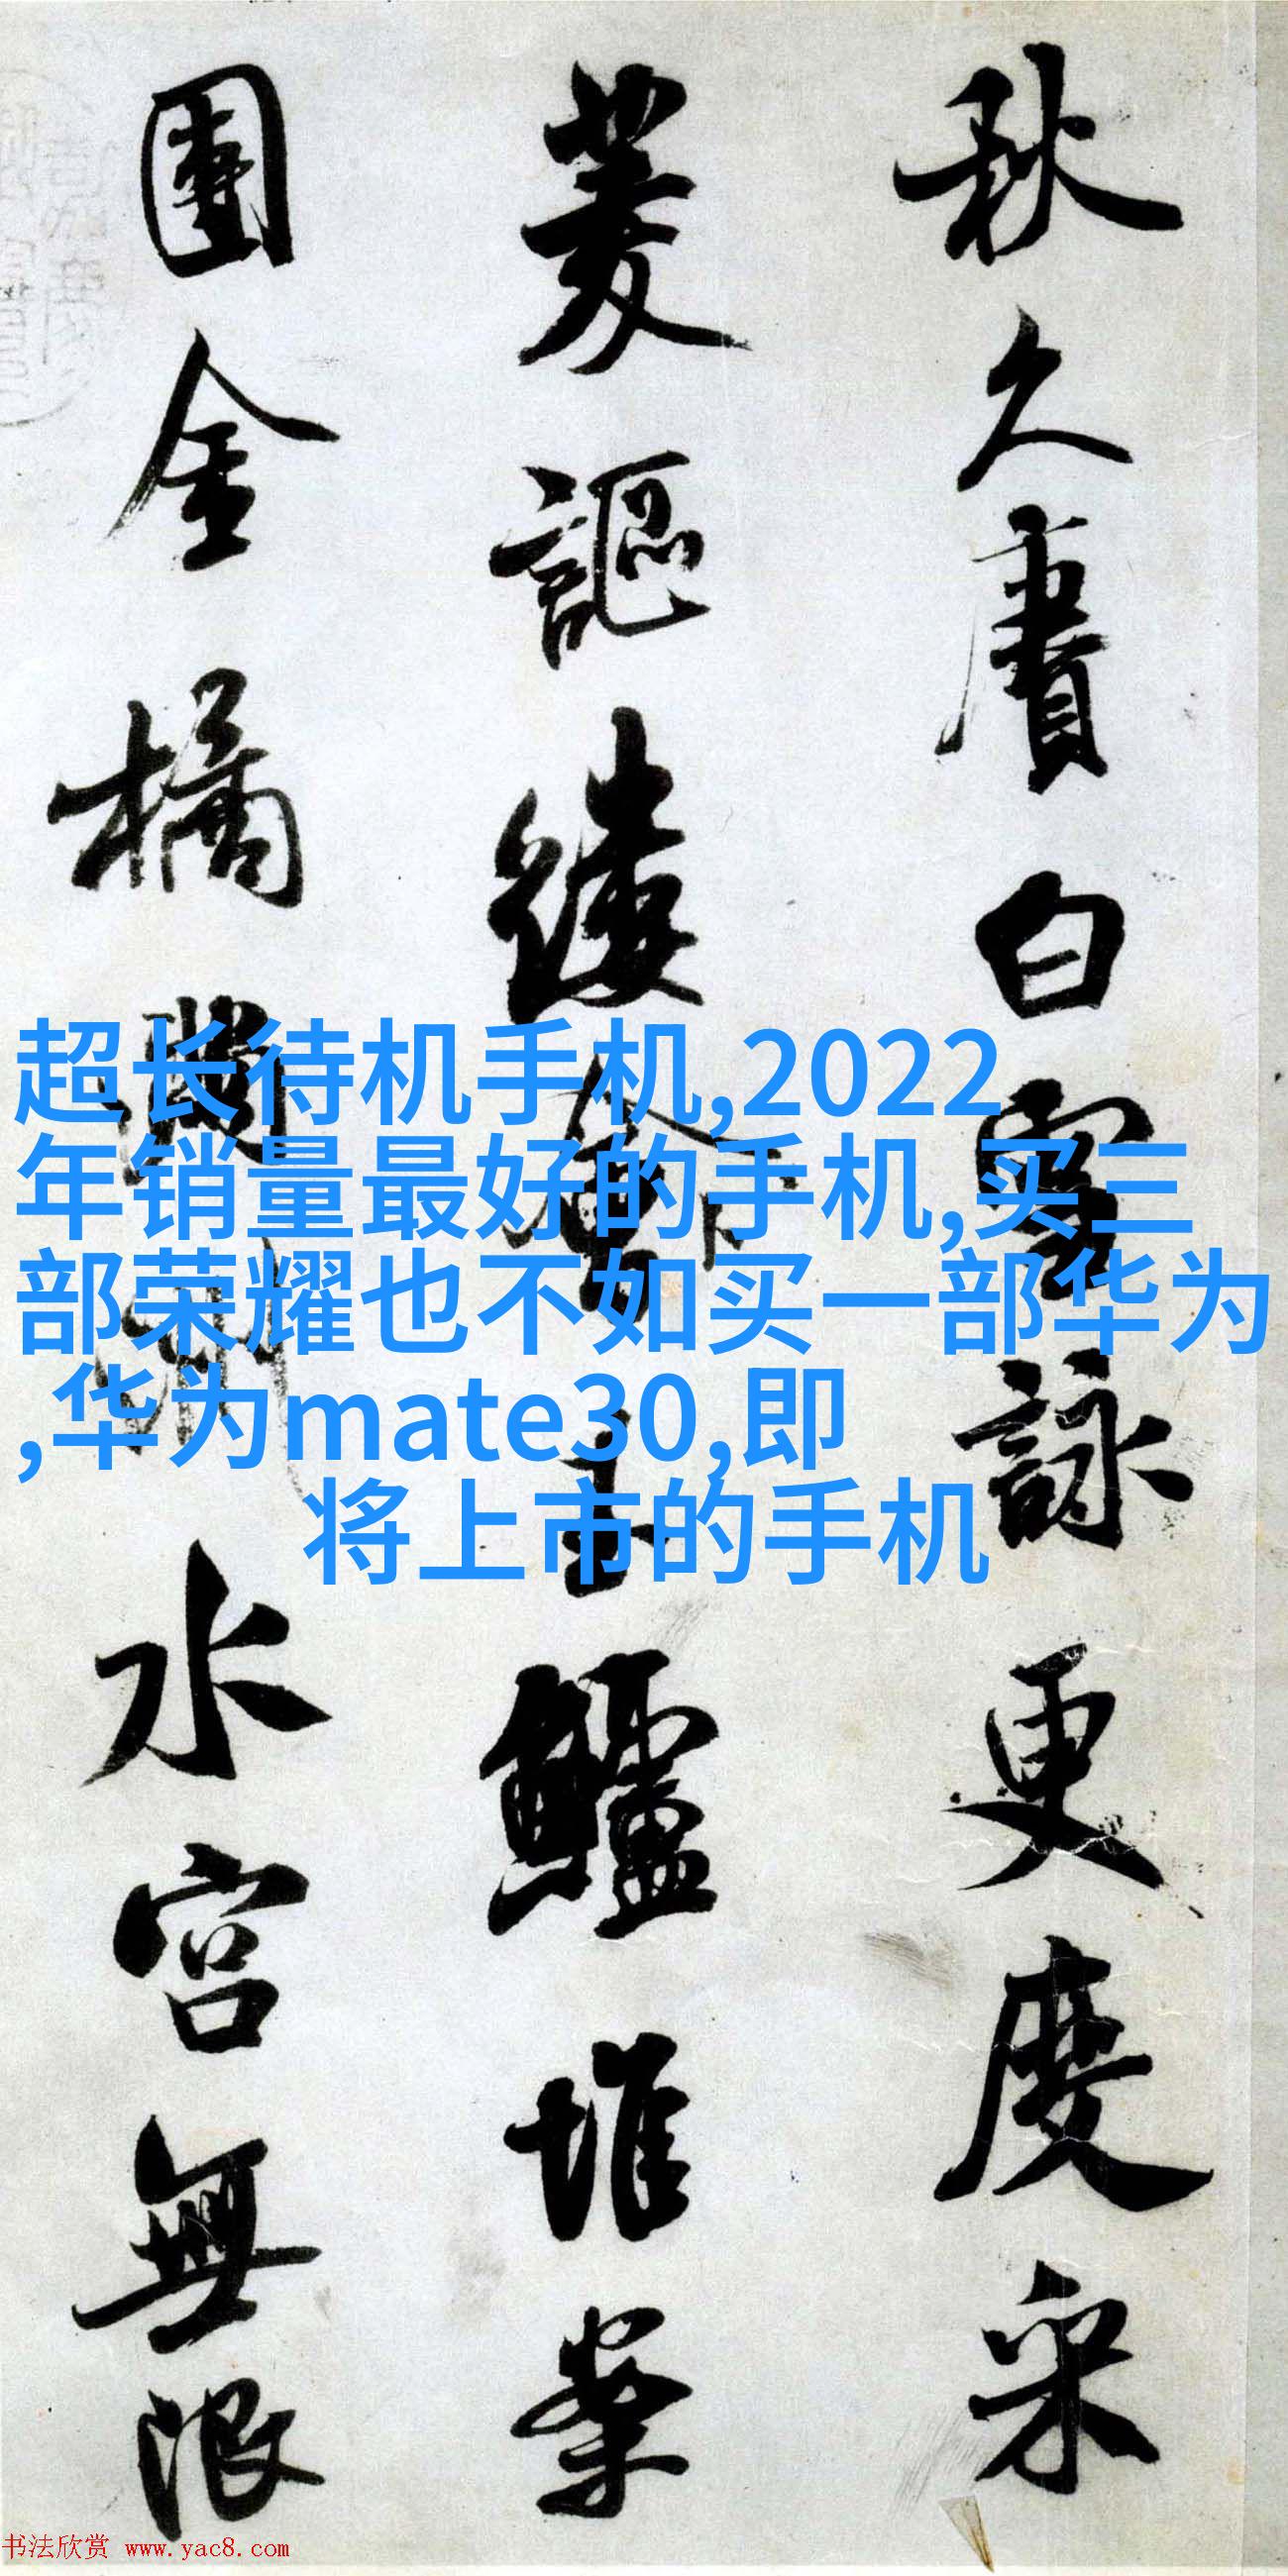 秋久賡白雪詠更度采
菱謳縷會玉鱸堆案
團金橘滿洲水宮無限
超长待机手机,2022
年销量最好的手机,买三
部荣耀也不如买一部华为
,华为mate30,即
将上市的手机
书法欣赏 www.yac8.com